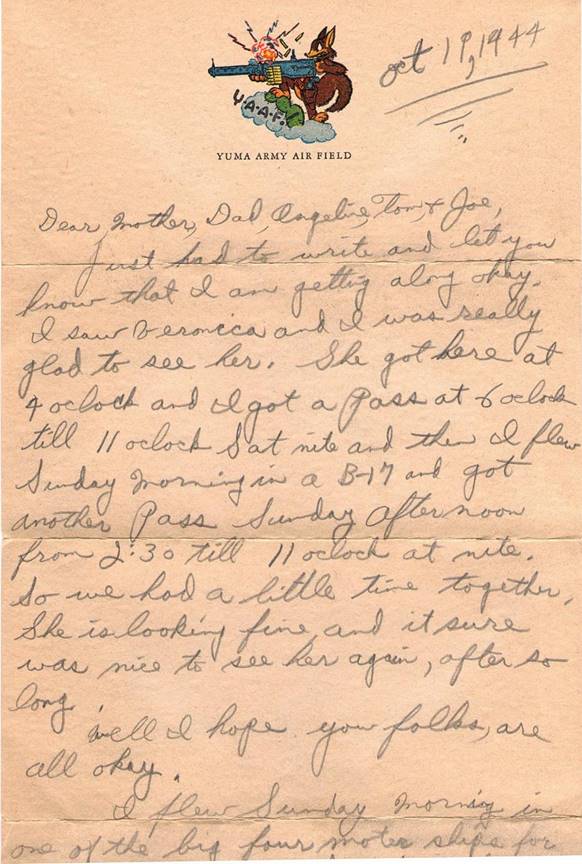 Oct 19, 1944
Y.A.A.F.
YUMA ARMY AIR FIELD
Dear Mother, Dad, Angeline, Tom & Joe,
Just had to write and let you
know that I am getting along okay.
I saw Veronica and I was really
glad to see her. She got here at
4 oclock and I got a Pass at 6 oclock
till 11 oclock Sat nite and then I flew
Sunday Morning in a B-17 and got
another Pass Sunday afternoon
from 2:30 till 11 oclock at nite.
So we had a little time together.
She is looking fine, and it sure
was nice to see her again, after so
long.
Well I hope you folks, are
all okay.
I flew Sunday Morning in
one of the big four moter ships for